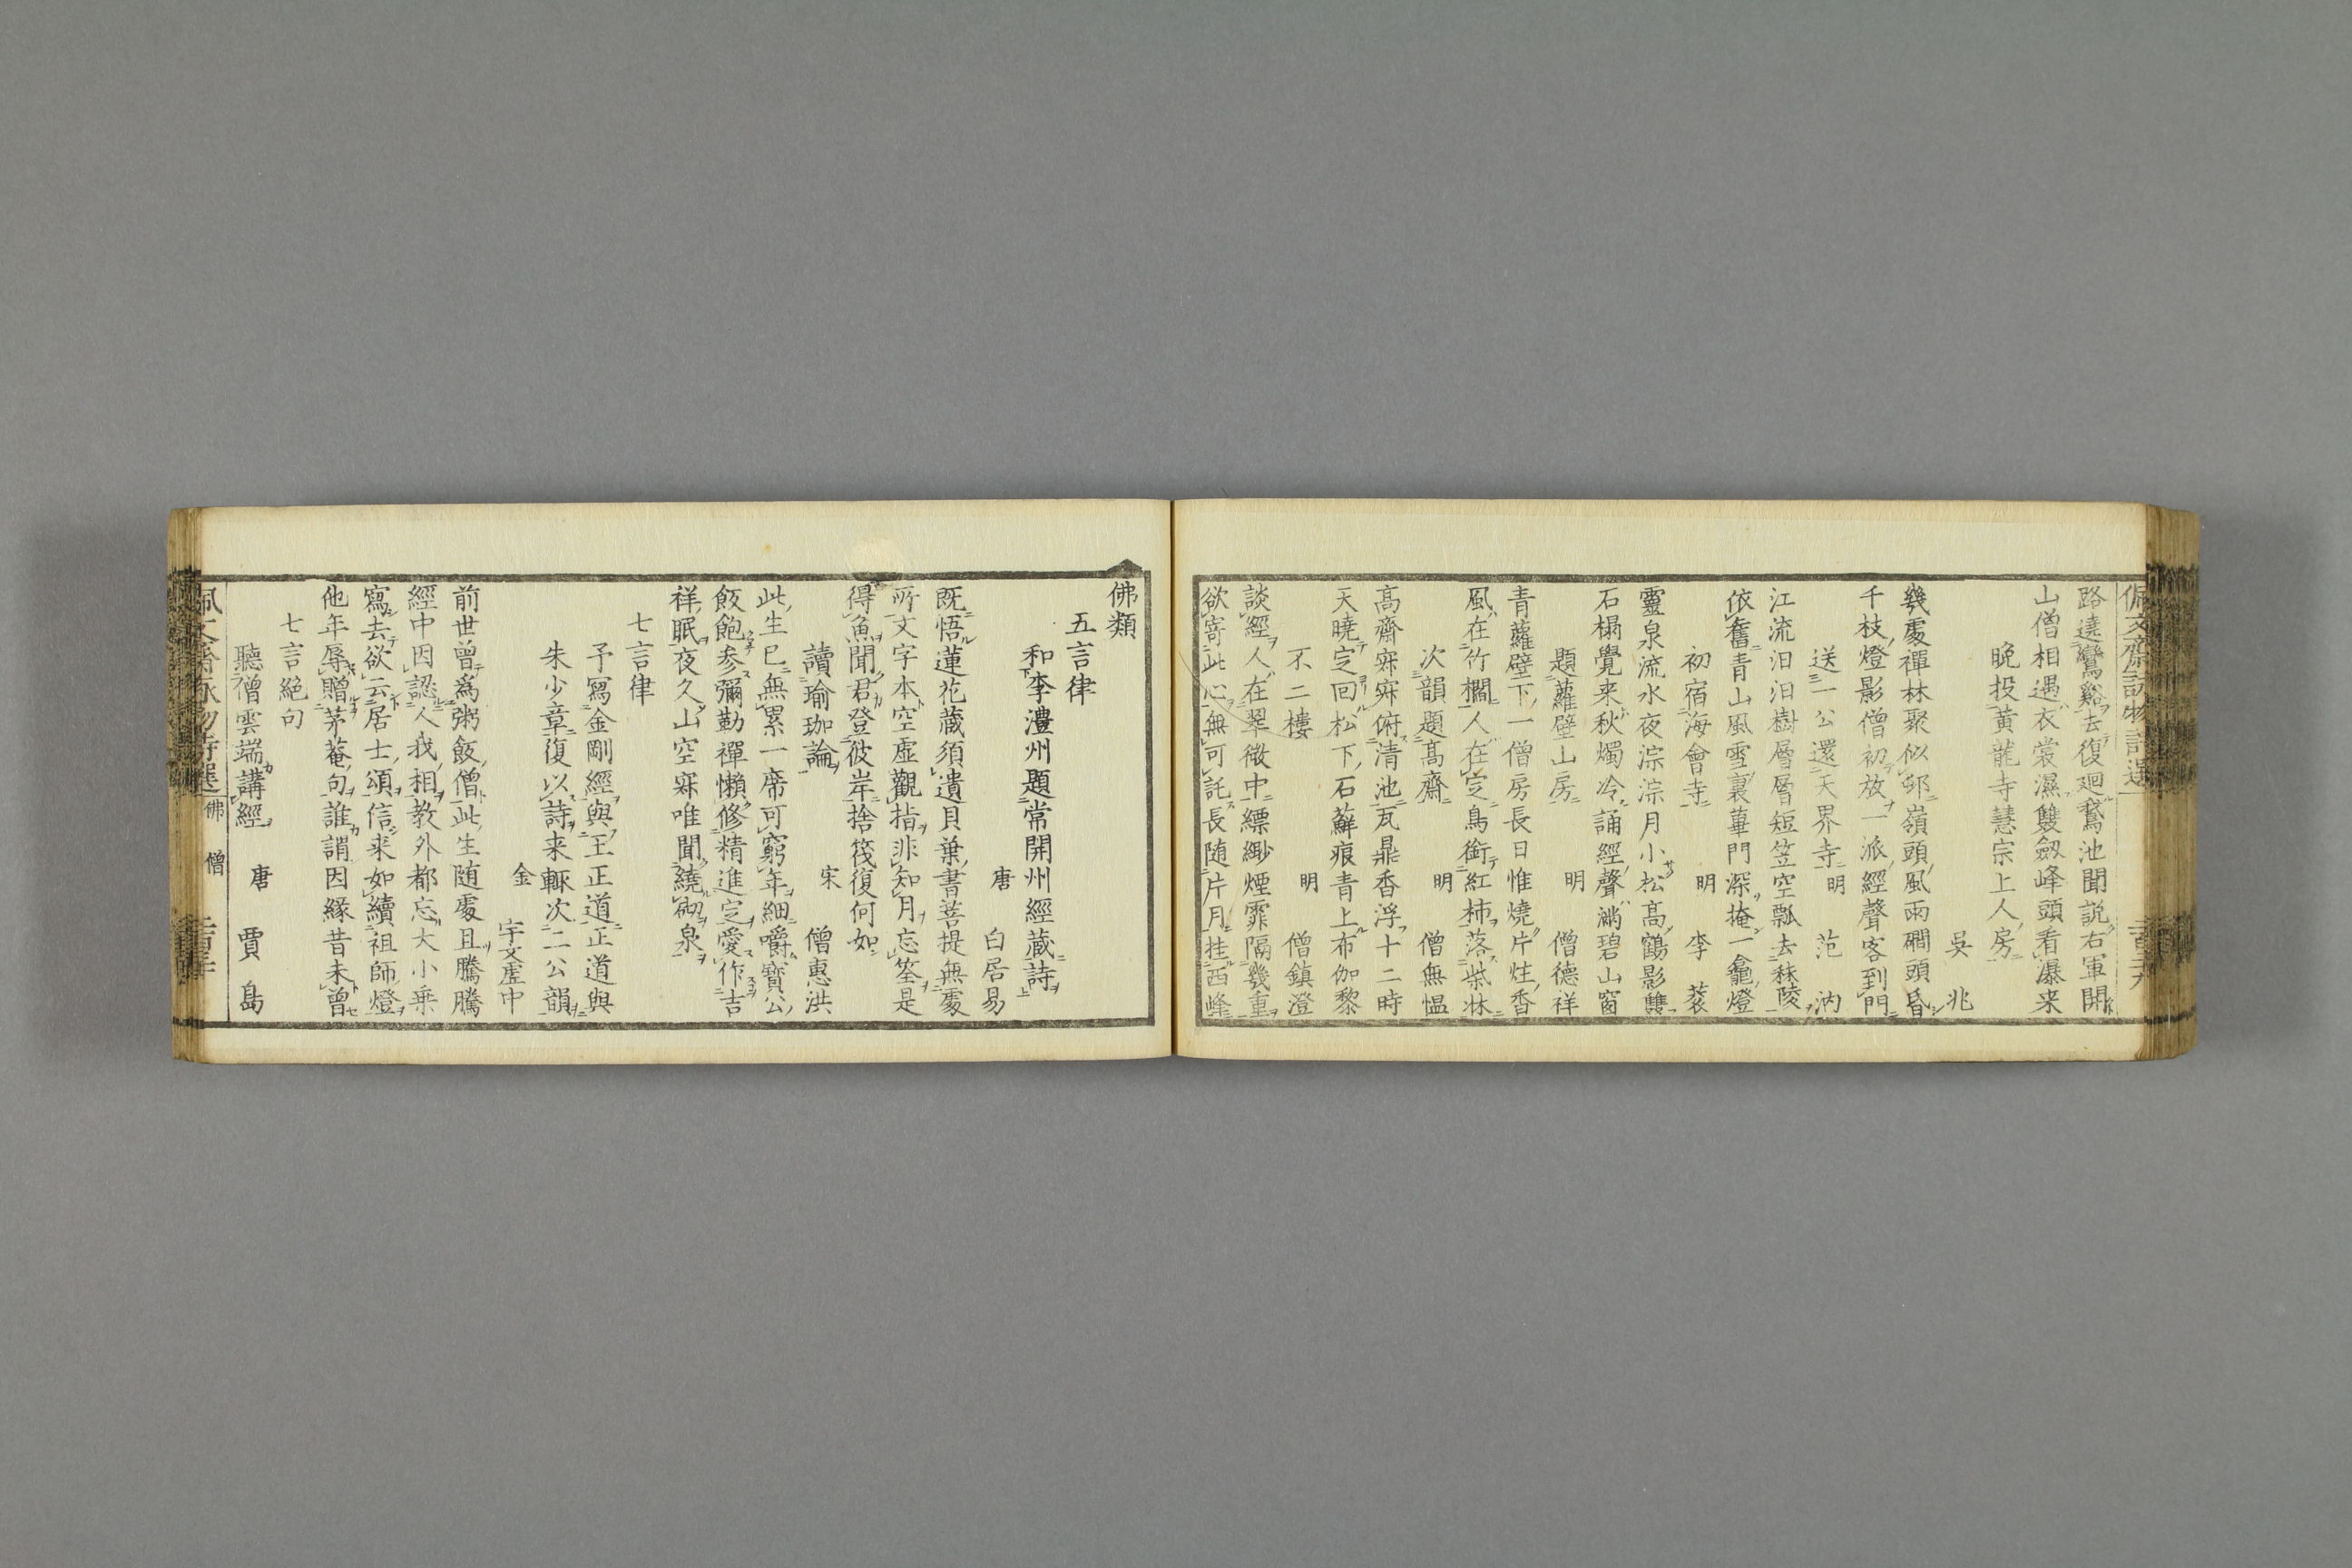 佩文齋詠物詩選
路遶鸞谿去復廻鵞池聞説右軍開
山僧相遇衣裳濕雙劔峰頭看瀑来
晩投黄龍寺慧宗上人房
呉兆
幾處禪林聚似邨嶺頭風雨磵頭昏
千枝燈影僧初放一派經聲客到門
送一公還天界寺 明 范汭
江流汨汨樹層層短笠空瓢去秣陵
依舊青山風雪裏蓽門深掩一龕燈
初宿海會寺 明 李蓘
靈泉流水夜淙淙月小松高鶴影雙
石榻覺来秋燭冷誦經聲滿碧山窗
題蘿壁山房 明 僧德祥
青蘿壁下一僧房長日惟燒片炷香
風在竹欄人在定鳥銜紅柿落柴牀
次韻題髙齋 明 僧無愠
髙齋寂寂俯清池瓦鼎香浮十二時
天曉定回松下石蘚痕青上布伽黎
不二樓 明 僧鎮澄
談經人在翠微中縹緲煙霏隔幾重
欲寄此心無可託長随片月挂西峰
佛類
五言律
和李澧州題常開州經蔵詩
唐 白居易
既悟蓮花蔵須遺貝葉書菩提無處
所文字本空虚觀指非知月忘筌是
得魚聞君登彼岸捨筏復何如
讀瑜珈論 宋 僧惠洪
此生已無累一席可窮年細嚼寶公
飯飽参彌勒禪懶修精進定愛作吉
祥眠夜久山空寂唯聞繞砌泉
七言律
予寫金剛經與王正道正道與
朱少章復以詩来輙次二公韻
金 宇文虚中
前世曾爲粥飯僧此生随處且騰騰
經中因認人我相教外都忘大小乗
寫去欲云居士頌信来如續祖師燈
他年辱贈茅菴句誰謂因縁昔未曾
七言絶句
聽僧雲端講經 唐 賈島
佩文齋詠物詩選 佛 僧